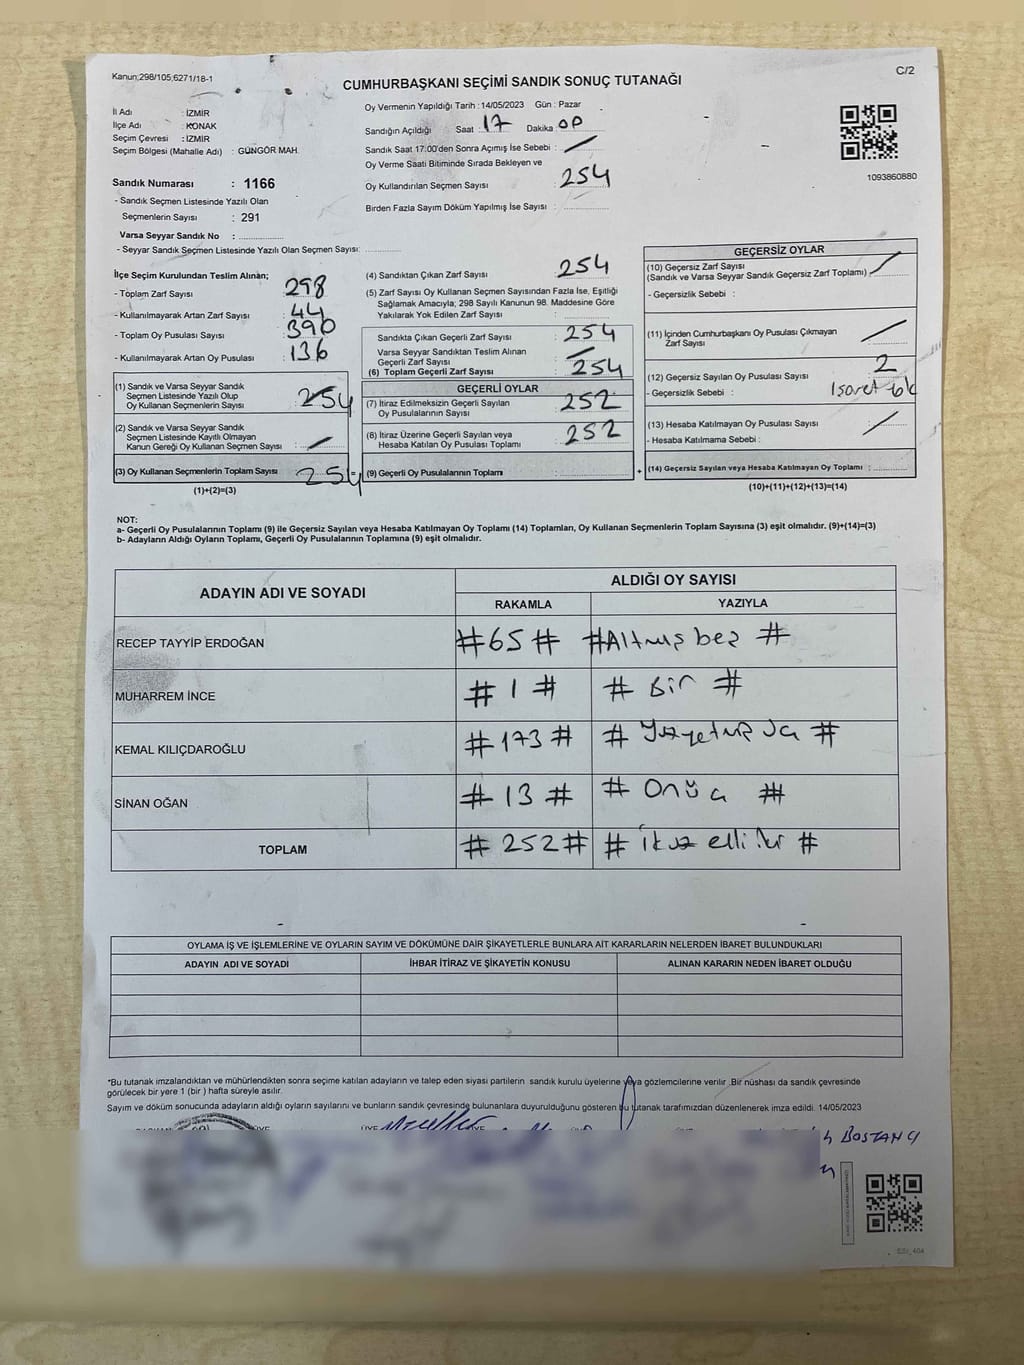 Kanun;298/105;6271/18-1
C/2
CUMHURBAŞKANI SEÇİMİ SANDIK SONUÇ TUTANAĞI
İl Adı : İZMİR
İlçe Adı : KONAK
Seçim Çevresi : İZMİR
Seçim Bölgesi (Mahalle Adı) : GÜNGÖR MAH.
Sandık Numarası : 1166
- Sandık Seçmen Listesinde Yazılı Olan
Seçmenlerin Sayısı : 291
Varsa Seyyar Sandık No :
- Seyyar Sandık Seçmen Listesinde Yazılı Olan Seçmen Sayısı:
Oy Vermenin Yapıldığı Tarih : 14/05/2023 Gün : Pazar
Sandığın Açıldığı Saat : 17 Dakika :
Sandık Saat 17:00'den Sonra Açımış İse Sebebi :
Oy Verme Saati Bitiminde Sırada Bekleyen ve
Oy Kullandırılan Seçmen Sayısı : 254
Birden Fazla Sayım Döküm Yapılmış İse Sayısı :
1093860880
İlçe Seçim Kurulundan Teslim Alınan;
- Toplam Zarf Sayısı : 298
- Kullanılmayarak Artan Zarf Sayısı : 44
- Toplam Oy Pusulası Sayısı : 390
- Kullanılmayarak Artan Oy Pusulası : 136
(1) Sandık ve Varsa Seyyar Sandık
Seçmen Listesinde Yazılı Olup
Oy Kullanan Seçmenlerin Sayısı : 254
(2) Sandık ve Varsa Seyyar Sandık
Seçmen Listesinde Kayıtlı Olmayan
Kanun Gereği Oy Kullanan Seçmen Sayısı :
(3) Oy Kullanan Seçmenlerin Toplam Sayısı 254
(1)+(2)=(3)
(4) Sandıktan Çıkan Zarf Sayısı : 254
(5) Zarf Sayısı Oy Kullanan Seçmen Sayısından Fazla İse, Eşitliği
Sağlamak Amacıyla; 298 Sayılı Kanunun 98. Maddesine Göre
Yakılarak Yok Edilen Zarf Sayısı :
Sandıkta Çıkan Geçerli Zarf Sayısı : 254
Varsa Seyyar Sandıktan Teslim Alınan
Geçerli Zarf Sayısı :
(6) Toplam Geçerli Zarf Sayısı : 254
GEÇERLİ OYLAR
(7) İtiraz Edilmeksizin Geçerli Sayılan
Oy Pusulalarının Sayısı : 252
(8) İtiraz Üzerine Geçerli Sayılan veya
Hesaba Katılan Oy Pusulası Toplamı : 252
= (9) Geçerli Oy Pusulalarının Toplamı :
GEÇERSİZ OYLAR
(10) Geçersiz Zarf Sayısı
(Sandık ve Varsa Seyyar Sandık Geçersiz Zarf Toplamı)
- Geçersizlik Sebebi :
(11) İçinden Cumhurbaşkanı Oy Pusulası Çıkmayan
Zarf Sayısı :
(12) Geçersiz Sayılan Oy Pusulası Sayısı : 2
- Geçersizlik Sebebi :
(13) Hesaba Katılmayan Oy Pusulası Sayısı :
- Hesaba Katılmama Sebebi :
+ (14) Geçersiz Sayılan veya Hesaba Katılmayan Oy Toplamı :
(10)+(11)+(12)+(13)=(14)
NOT:
a- Geçerli Oy Pusulalarının Toplamı (9) ile Geçersiz Sayılan veya Hesaba Katılmayan Oy Toplamı (14) Toplamları, Oy Kullanan Seçmenlerin Toplam Sayısına (3) eşit olmalıdır. (9)+(14)=(3)
b- Adayların Aldığı Oyların Toplamı, Geçerli Oy Pusulalarının Toplamına (9) eşit olmalıdır.
ADAYIN ADI VE SOYADI ALDIĞI OY SAYISI
RAKAMLA YAZIYLA
RECEP TAYYİP ERDOĞAN #65# #Altmış beş #
MUHARREM İNCE #1# # Bir #
KEMAL KILIÇDAROĞLU #173# # Yüzyetmiş üç #
SİNAN OĞAN #13# # Onüç #
TOPLAM #252# # İkiyüz elli iki #
OYLAMA İŞ VE İŞLEMLERİNE VE OYLARIN SAYIM VE DÖKÜMÜNE DAİR ŞİKAYETLERLE BUNLARA AİT KARARLARIN NELERDEN İBARET BULUNDUKLARI
ADAYIN ADI VE SOYADI İHBAR İTİRAZ VE ŞİKAYETİN KONUSU ALINAN KARARIN NEDEN İBARET OLDUĞU
*Bu tutanak imzalandıktan ve mühürlendikten sonra seçime katılan adayların ve talep eden siyasi partilerin sandık kurulu üyelerine veya gözlemcilerine verilir .Bir nüshası da sandık çevresinde
görülecek bir yere 1 (bir ) hafta süreyle asılır.
Sayım ve döküm sonucunda adayların aldığı oyların sayılarını ve bunların sandık çevresinde bulunanlara duyurulduğunu gösteren bu tutanak tarafımızdan düzenlenerek imza edildi. 14/05/2023
BOSTANCI